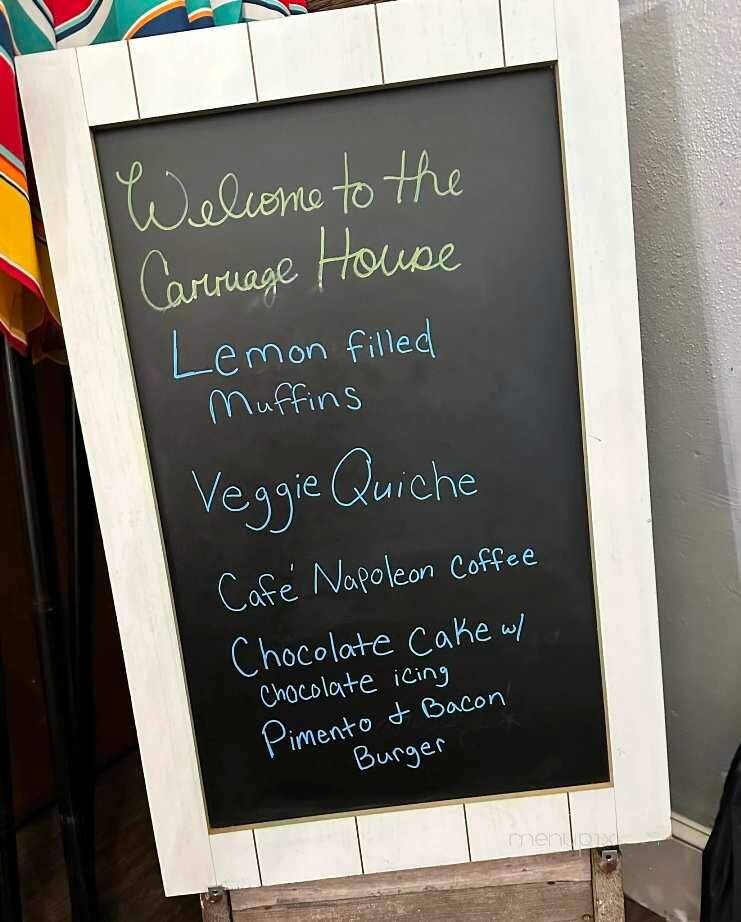 Welcome to the
Carriage House
Lemon filled
Muffins
Veggie Quiche
Café Napoleon Coffee
Chocolate Cake w/
chocolate icing
Pimento & Bacon
Burger
menupix